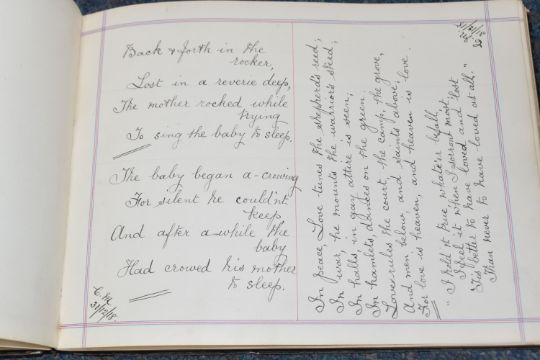 Back & forth in the
rocker,
Lost in a reverie deep,
The mother rocked while
trying
To sing the baby to sleep.
The baby began a-crowing
For silent he couldn't
keep
And after a-while the
baby
Had crowed his mother
to sleep.
31/12/18.
In peace, Love tunes the shepherd's reed;
In war, he mounts the warrior's steed;
In halls, in gay attire is seen;
In hamlets, dances on the green.
Love rules the court, the camp, the grove,
And men below, and saints above;
For love is heaven, and heaven is love.
"I hold it true, whate'er befall,
I feel it when I sorrow most,
'Tis better to have loved and lost
Than never to have loved at all."